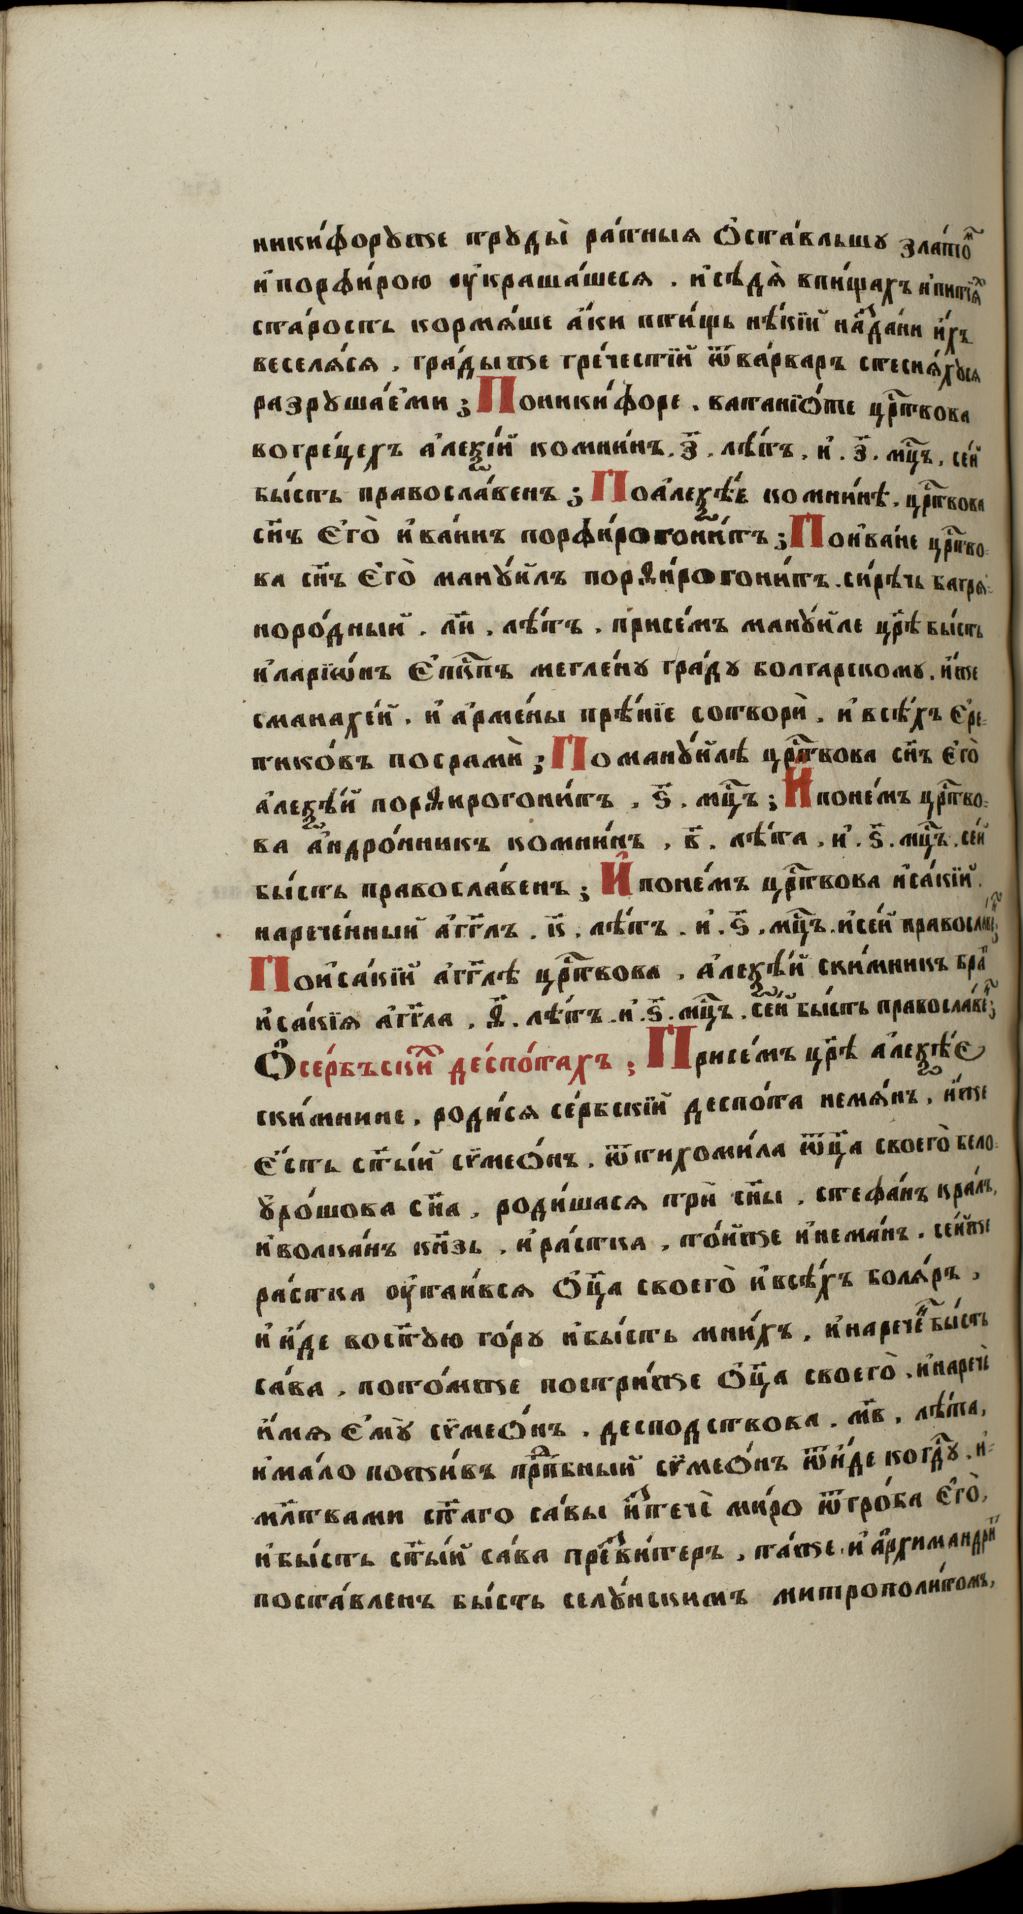 ники́форꙋже трꙋды̀ ра́тныѧ ѡ҆ста́вльшꙋ зла́то
и҆порфи́рою оу҆краша́шесѧ . и҆сѣдѧ̀ впи́щахъ и҆пити́ѧ
ста́рость кормѧ́ше а҆́ки пти́щь нѣ́кїй на́дани и҆́хъ
веселѧ́сѧ , гра́ды же гре́честїй ѿва́рваръ стеснѧ́хꙋсѧ
разрꙋша́еми ; Поники́форе . ватанїѡ́те црⷭ҇твова
вогре́цехъ а҆леѯі́й комни́нъ . л҃з . лѣ́тъ . и҆ . з҃ . мцⷭ҇ъ . се́й
бы́сть правосла́венъ ; Поа҆леѯѣ́е комни́нѣ . црⷭ҇твова
сн҃ъ є҆го̀ и҆ва́ннъ порфи́рогони́тъ ; Пои҆ва́не црⷭ҇тво-
ва сн҃ъ є҆го̀ манꙋ́илъ порѳи́рогони́тъ . си́рѣчь багрѧ-
норо́дный . л҃и . лѣ́тъ . присе́мъ манꙋ́иле цр҃ѣ бы́сть
и҆ларїѡ́нъ є҆пкⷭ҇пъ меглéнꙋ гра́дꙋ болгарскомꙋ . и҆́же
сманахе́й . и҆ а҆рме́ны прѣ́нїе сотвори̇̀ . и҆всѣ́хъ є҆ре-
тико́въ посрами̇̀ ; Поманꙋ́илѣ црⷭ҇твова сн҃ъ є҆го̀
а҆леѯѣ́й порѳирогони́тъ , ѕ҃ . мцⷭ҇ъ ; И҆поне́мъ црⷭ҇тво-
ва а҆ндро́нникъ комни́нъ , в҃ . лѣ́та , и҆ . ѕ҃ . мцⷭ҇ъ . се́й
бы́сть правосла́венъ ; И҆поне́мъ црⷭ҇твова и҆са́кїй .
нарече́нный а҆гг҃лъ . к҃ . лѣ́тъ . и҆ . ѕ҃ . мцⷭ҇ъ . и҆се́й правосла́ве
Пои҆са́кїй а҆гг҃лѣ црⷭ҇твова , а҆леѯѣ́й ски́мникъ бра́
и҆са́кїѧ а҆гг҃ла , ѳ҃ . лѣ́тъ . и҆ . ѕ҃ . мцⷭ҇ъ . се́й бы́сть правосла́ве ;
Ѡ҆се́рбъски деспо́тахъ ; Присе́мъ цр҃ѣ а҆леѯѣ́е
ски́мнине , роди́сѧ се́рбскїй деспо́та немѧ́нъ , и҆́же
є҆́сть ст҃ы́й сѷмеѡ́нъ , ѿтихоми́ла ѿц҃а своегѡ̀ бело-
ꙋро́шова сн҃а , роди́шасѧ три̇̀ сн҃ы , стефа́нъ кра́лъ,
и҆волка́нъ кн҃зь , и҆ра́стка , то́йже и҆нема́нъ . се́йже
ра́стка оу҆таи́всѧ ѻ҆ц҃а своего̀ и҆всѣ́хъ болѧ́ръ ,
и҆ и҆́де вост҃ꙋю го́рꙋ и҆бы́сть мни́хъ , и҆нарече бы́сть
са́ва , пото́мже постри́же ѻ҆ц҃а своего̀ . и҆наречѐ
и҆́мѧ є҆мꙋ̀ сѷмеѡ́нъ . десподствова . м҃в , лѣ́та,
и҆ма́ло пожи́въ прпⷣбный сѷмеѡ́нъ ѿи́де когдⷭ҇ꙋ . и҆-
млт҃вами ст҃аго са́вы и҆стечѐ ми́ро ѿгро́ба є҆го̀,
и҆бы́сть ст҃ы́й са́ва презви́теръ , та́же . и҆ а҆рхимандри
поста́вленъ бы́сть селꙋ́нскимъ митрополи́томъ,